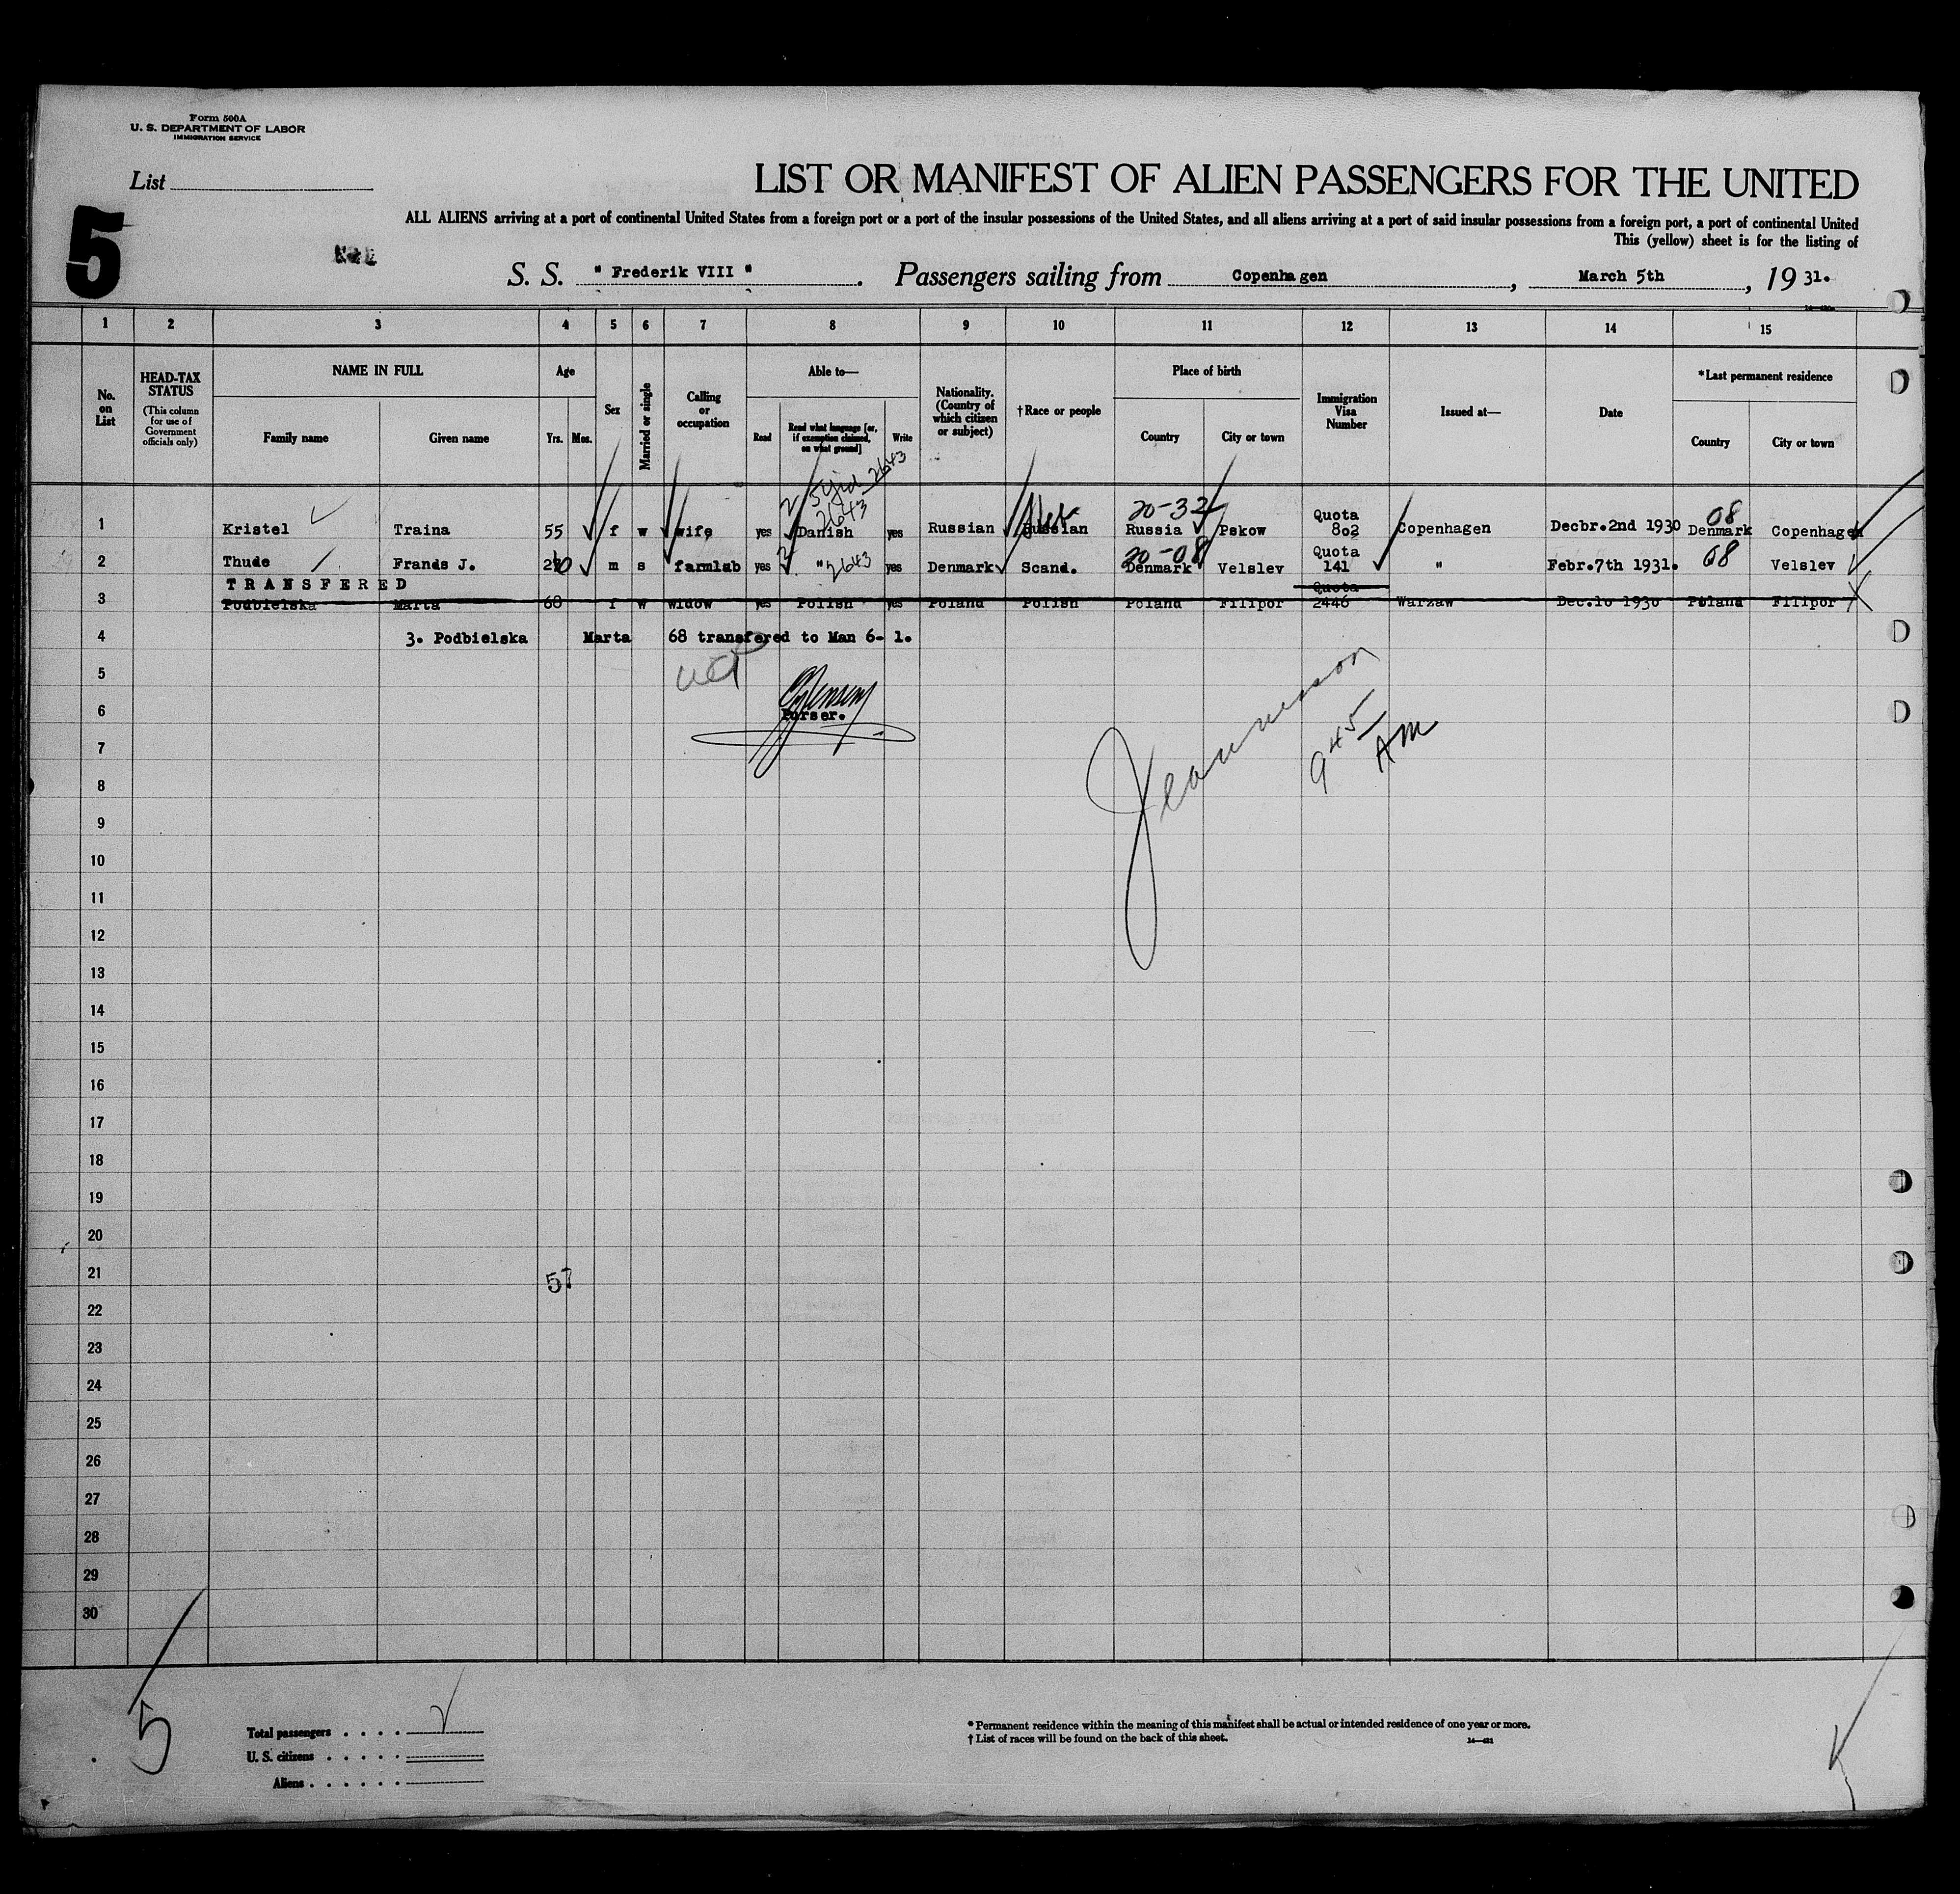 Form 500A
U. S. DEPARTMENT OF LABOR
IMMIGRATION SERVICE
List
LIST OR MANIFEST OF ALIEN PASSENGERS FOR THE UNITED
5
ALL ALIENS arriving at a port of continental United States from a foreign port or a port of the insular possessions of the United States, and all aliens arriving at a port of said insular possessions from a foreign port, a port of continental United
This (yellow) sheet is for the listing of
S. S. " Frederik VIII ". Passengers sailing from Copenhagen, March 5th, 19 31.
1 2 3 4 5 6 7 8 9 10 11 12 13 14 15
No. on List
HEAD-TAX STATUS
(This column for use of Government officials only)
NAME IN FULL
Family name
Given name
Age
Yrs. Mos.
Sex
Married or single
Calling or occupation
Able to—
Read
Read what language [or, if exemption claimed, on what ground]
Write
Nationality. (Country of which citizen or subject)
† Race or people
Place of birth
Country
City or town
Immigration Visa Number
Issued at—
Date
*Last permanent residence
Country
City or town
2643
2643
20-32
08
1 Kristel Traina 55 f w wife yes Danish yes Russian Russian Russia Pskow Quota 802 Copenhagen Decbr.2nd 1930 Denmark Copenhagen
20-08
2 Thude Frands J. m s farmlab yes " 2643 yes Denmark Scand. Denmark Velslev Quota 141 " Febr.7th 1931. 08 Velslev
TRANSFERED
3 Podbielska Marta 68 f w widow yes Polish yes Poland Polish Poland Filipor Quota 2446 Warzaw Dec.10 1930 Poland Filipor
4 3. Podbielska Marta 68 transfered to Man 6- 1.
5
6 Purser.
9 45 AM
7
8
9
10
11
12
13
14
15
16
17
18
19
20
21
57
22
23
24
25
26
27
28
29
30
5
Total passengers . . . .
U. S. citizens . . . . .
Aliens . . . . . .
* Permanent residence within the meaning of this manifest shall be actual or intended residence of one year or more.
† List of races will be found on the back of this sheet.